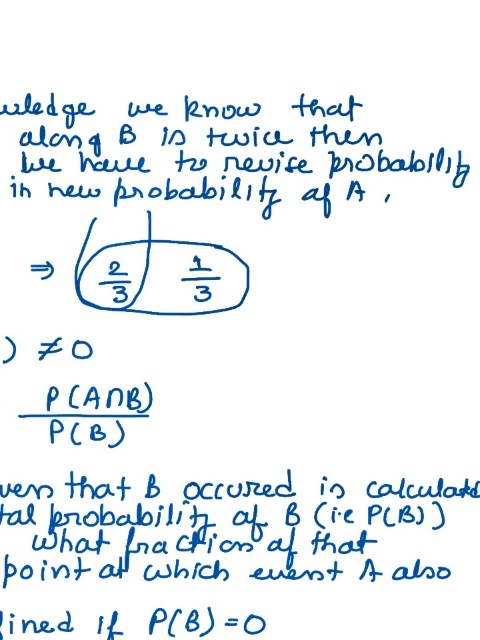 wledge we know that
along B is twice then
we have to revise probability
in new probability of A,
⇒ 2/3 1/3
) ≠ 0
P(A∩B)
P(B)
ven that B occured is calculate
tal probability of B (i.e P(B))
what fraction of that
point at which event A also
fined if P(B) = 0